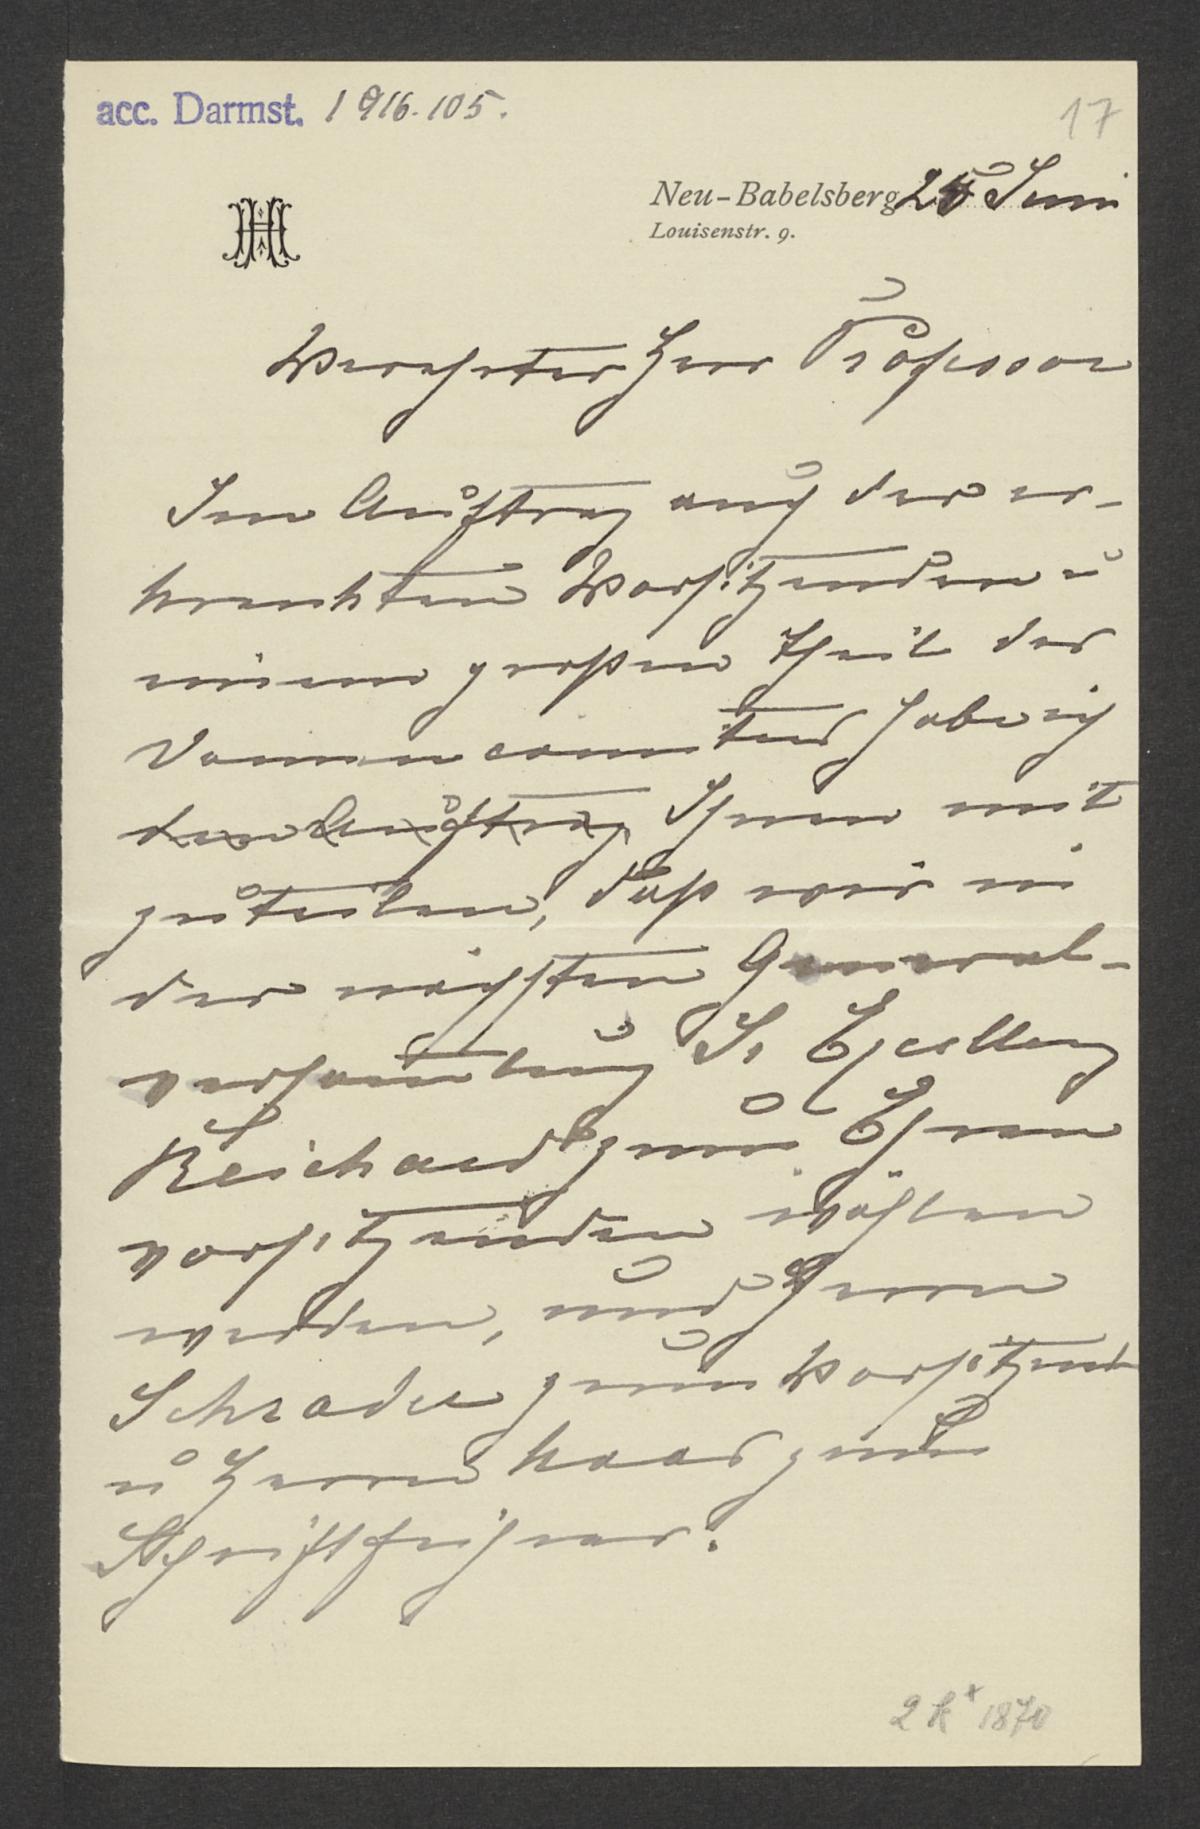 acc. Darmst. 1916.105.
17
Neu-Babelsberg 25 Juni
Louisenstr. 9.
Verehrter Herr Professor
Im Auftrag auch der er-
krankten Vorsitzenden u
einem großen Theil des
Damencomites habe ich
den Auftrag Ihnen mit
zuteilen, daß wir in
der nächsten General-
versamlung Sr Excellenz
Reichardt zum Ehren
vorsitzenden wählen
werden, und Herrn
Schrader zum Vorsitzend
u Herrn Haas zum
Schriftführer.
2 k+ 1870